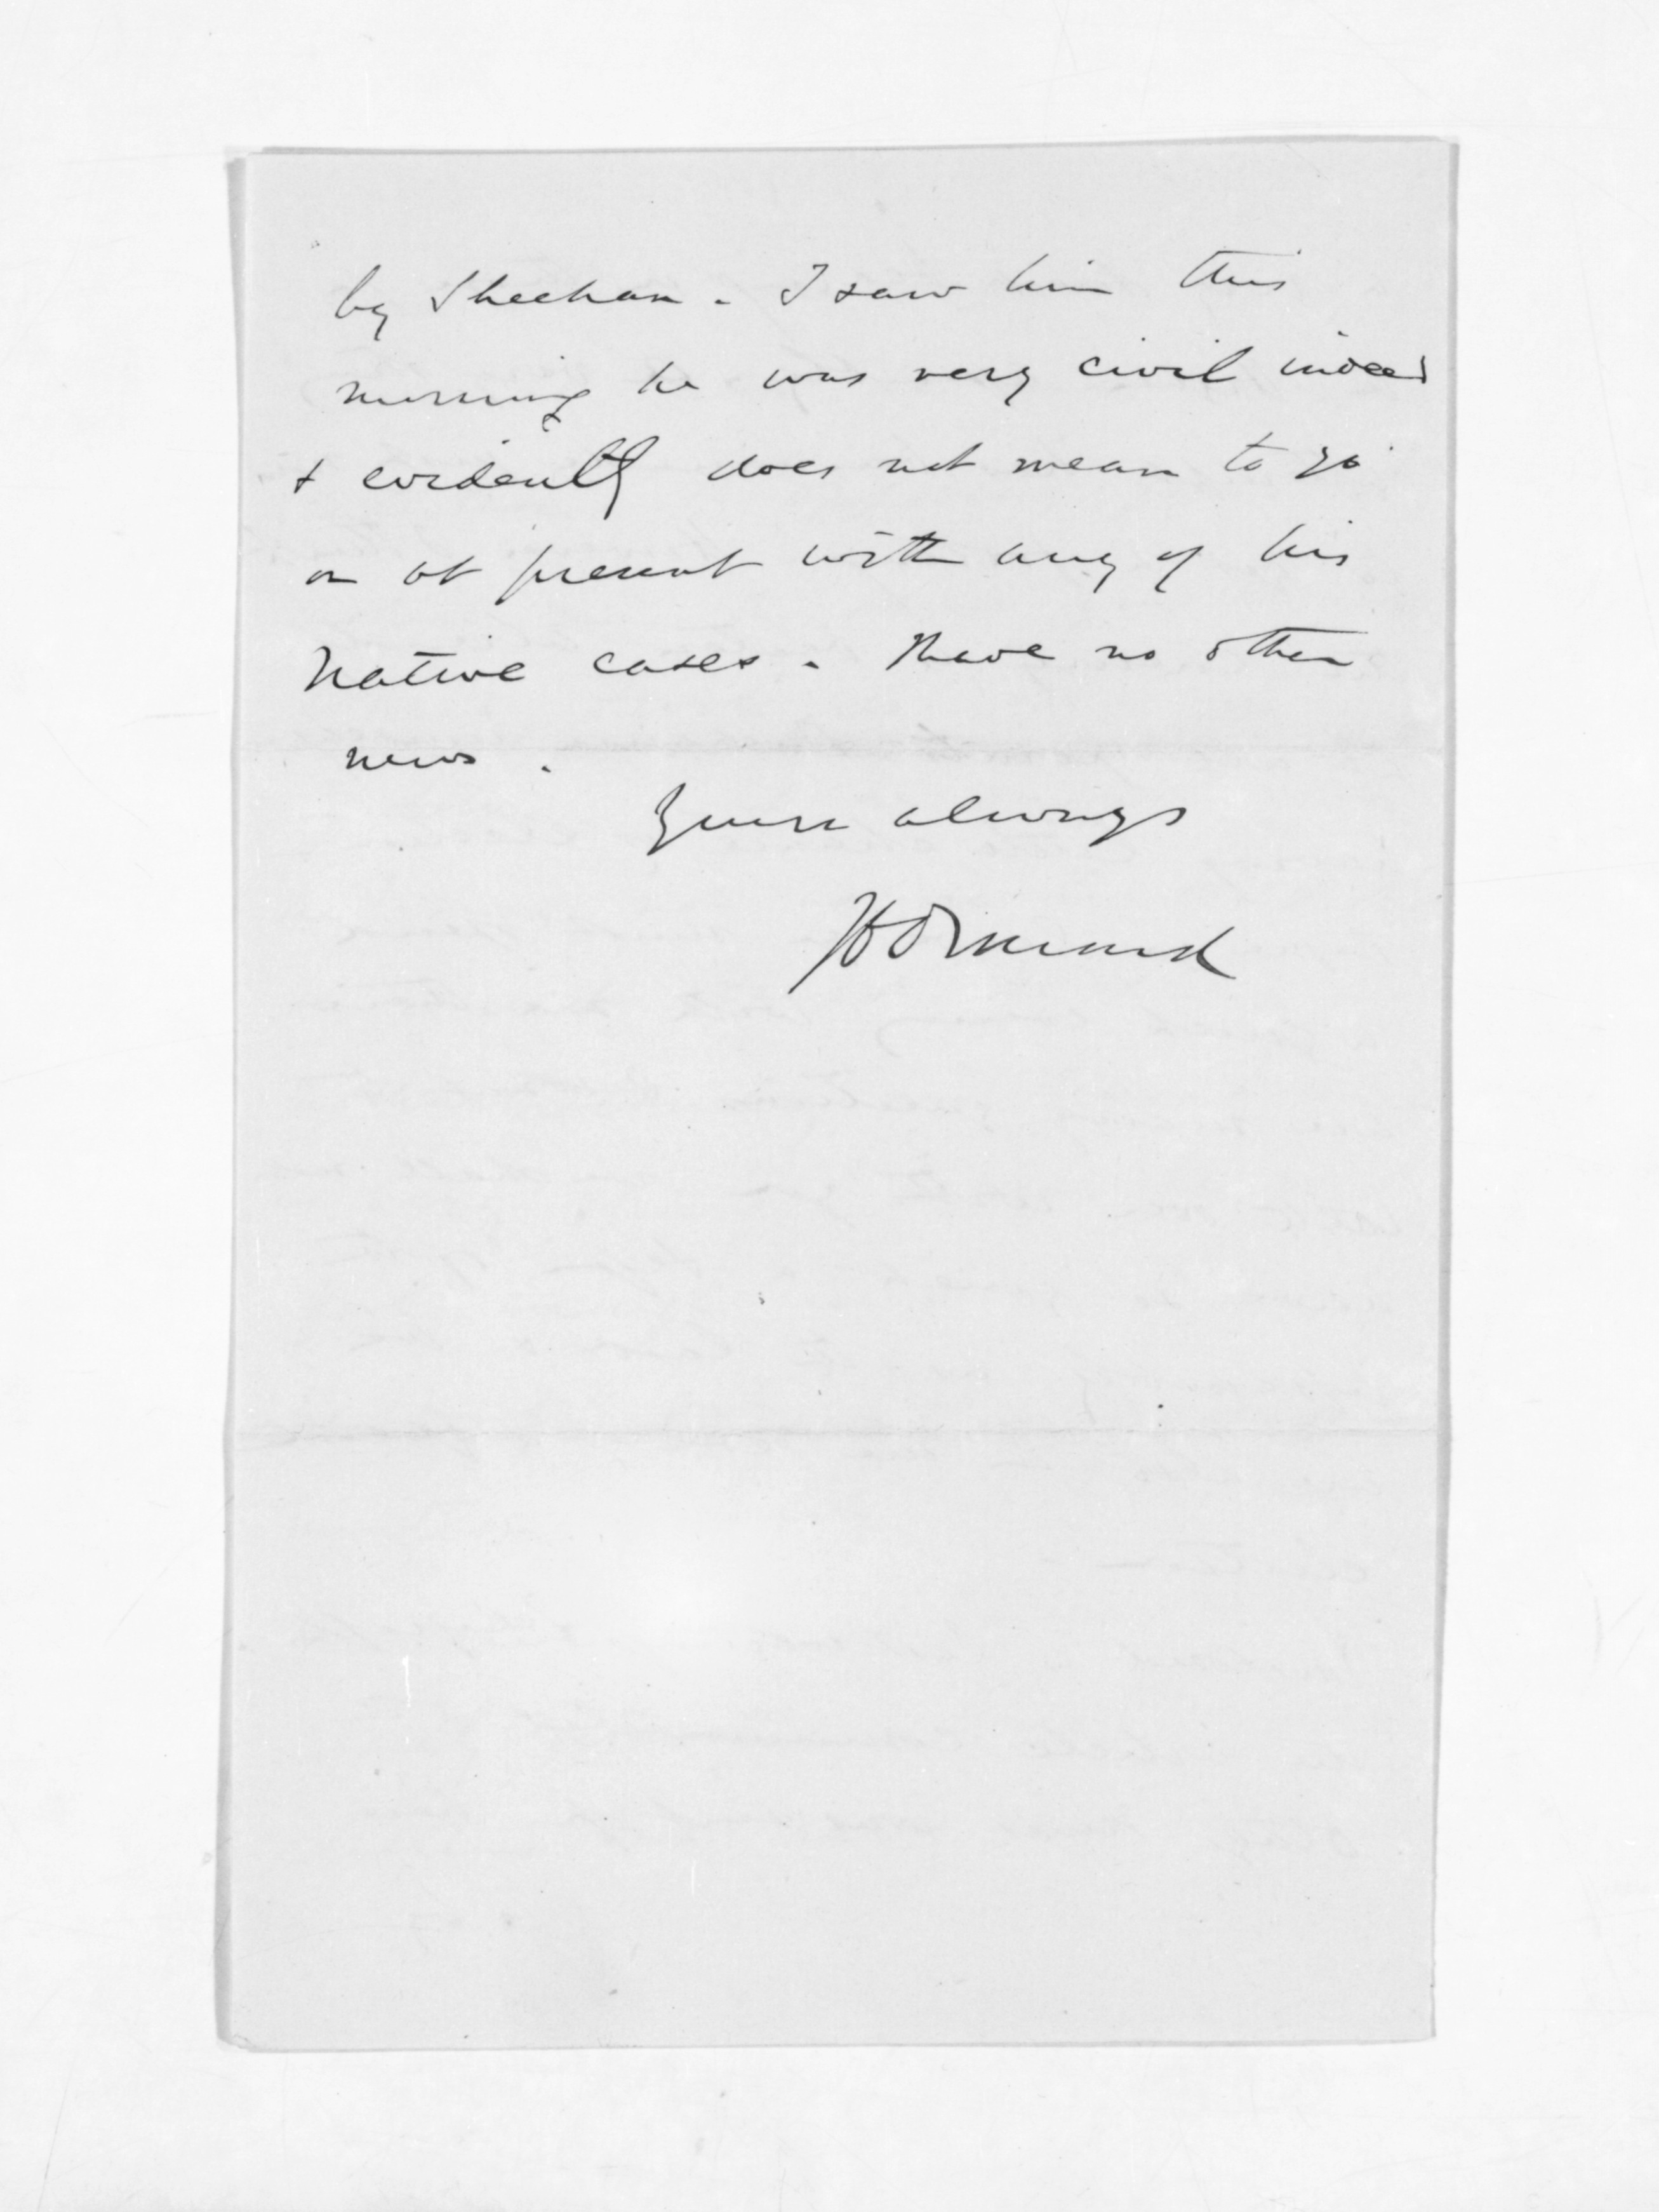 by Sheehan. I saw him this
morning he was very civil indeed
& evidently does not mean to go
on at present with any of his
Native cases. Have no other
news.
Yours always
JD Ormond